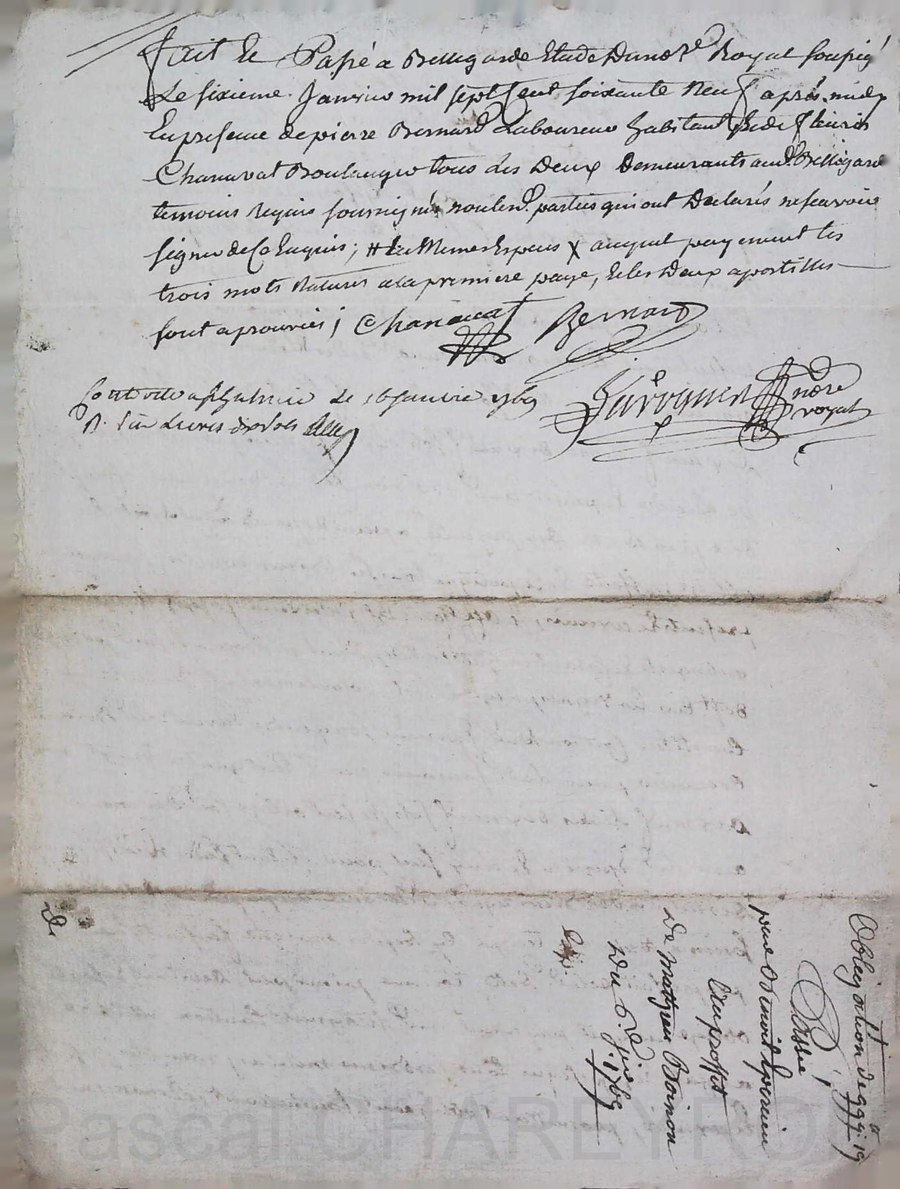 fait et Passé a Bellegarde Etude du no.re Royal soussigé
Le sixieme Janvier mil sept Cent soixante Neuf apres midy
En presence de pierre Bernard Laboureur habitant et de fleuris
Chanavat Boulanger tous les deux demeurants aud. Bellegarde
temoins requis soussignés non les d. parties qui ont Declarés ne scavoir
signer de Ce Enquis; # Les Memes Espeus X auquel payement les
trois mots Ratures a la premiere page, et les deux apostilles
sont aprouvés; Chanavat Bernard
Contrôlé a st Galmier le 16 janvier 1769
R.
no.re
royal
Obligation de
Passée
par Benoit
Au proffit
De Mathieu Boinon
Du 6.e j.vier 1769
Exp.
Pascal CHAREYRO